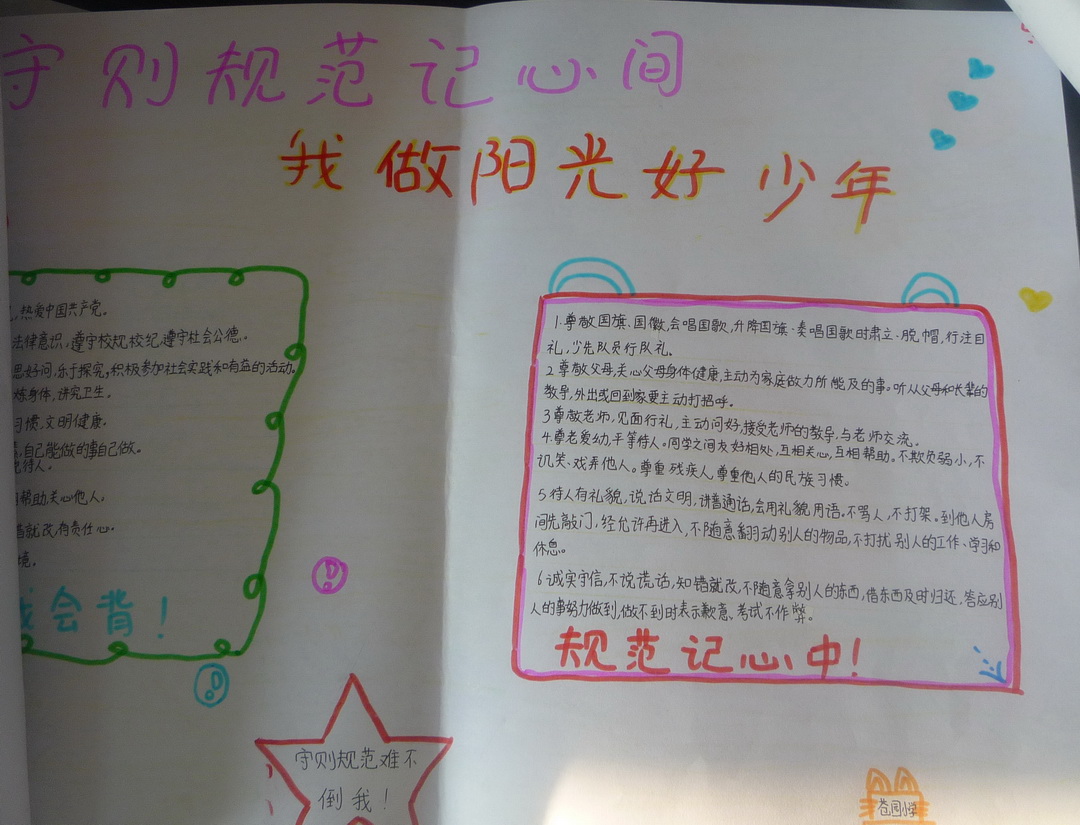 守则规范记心间
我做阳光好少年
热爱中国共产党。
法律意识,遵守校规校纪,遵守社会公德。
思好问,乐于探究,积极参加社会实践和有益的活动。
炼身体,讲究卫生。
习惯,文明健康。
自己能做的事自己做。
待人。
帮助,关心他人。
错就改,有责任心。
境。
我会背!
守则规范难不
倒我!
1.尊敬国旗、国徽,会唱国歌,升降国旗、奏唱国歌时肃立、脱帽,行注目
礼,少先队员行队礼。
2尊敬父母,关心父母身体健康,主动为家庭做力所能及的事。听从父母和长辈的
教导,外出或回到家要主动打招呼。
3尊敬老师,见面行礼,主动问好,接受老师的教导,与老师交流。
4.尊老爱幼,平等待人。同学之间友好相处,互相关心,互相帮助。不欺负弱小,不
讥笑、戏弄他人。尊重残疾人,尊重他人的民族习惯。
5待人有礼貌,说话文明,讲普通话,会用礼貌用语。不骂人,不打架。到他人房
间先敲门,经允许再进入,不随意翻动别人的物品,不打扰别人的工作、学习和
休息。
6诚实守信,不说谎话,知错就改,不随意拿别人的东西,借东西及时归还,答应别
人的事努力做到,做不到时表示歉意、考试不作弊。
规范记心中!
苍园小学